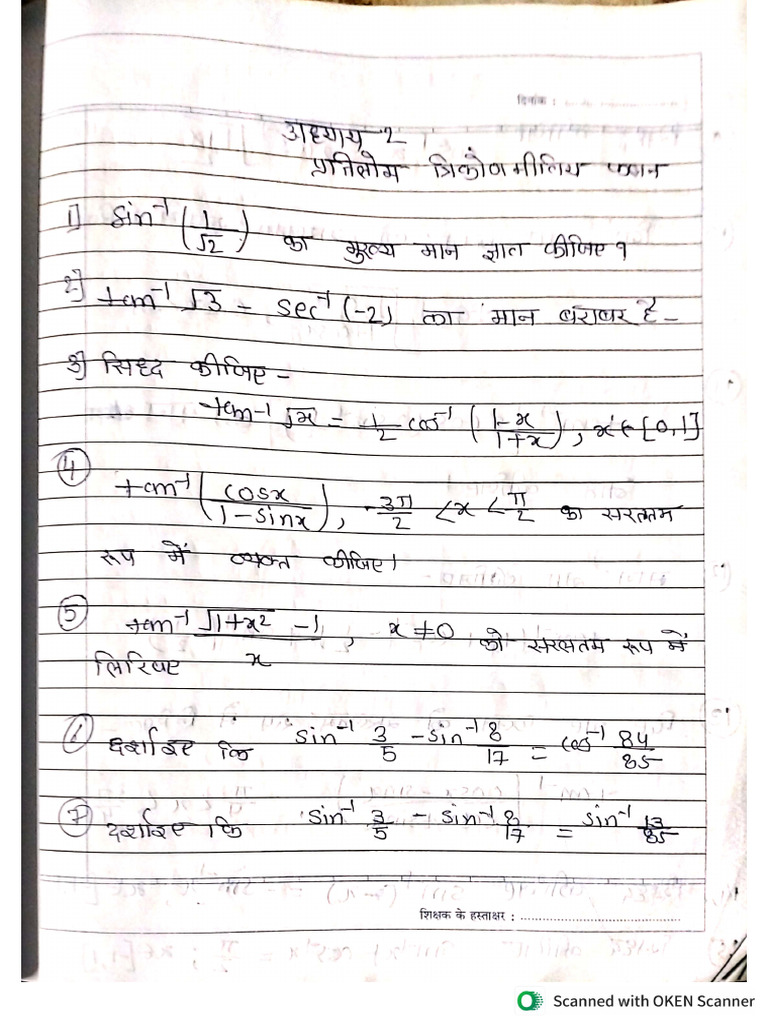 दिनांक :
अध्याय 2
प्रतिलोम त्रिकोणमीतिय फलन
1] sin⁻¹ (1/√2) का मुख्य मान ज्ञात कीजिए ?
2] tan⁻¹ √3 - sec⁻¹ (-2) का मान बराबर है -
3] सिध्द कीजिए -
tan⁻¹ √x = 1/2 cos⁻¹ (1-x/1+x), x ∈ [0,1]
4 tan⁻¹ (cosx/1-sinx), -3π/2 < x < π/2 का सरलतम
रूप में व्यक्त कीजिए।
5 tan⁻¹ √1+x² -1/x, x ≠ 0 को सरलतम रूप में
लिखिए
6 दर्शाइए कि sin⁻¹ 3/5 - sin⁻¹ 8/17 = cos⁻¹ 84/85
7 दर्शाइए कि sin⁻¹ 3/5 - sin⁻¹ 8/17 = sin⁻¹ 13/85
शिक्षक के हस्ताक्षर :
Scanned with OKEN Scanner